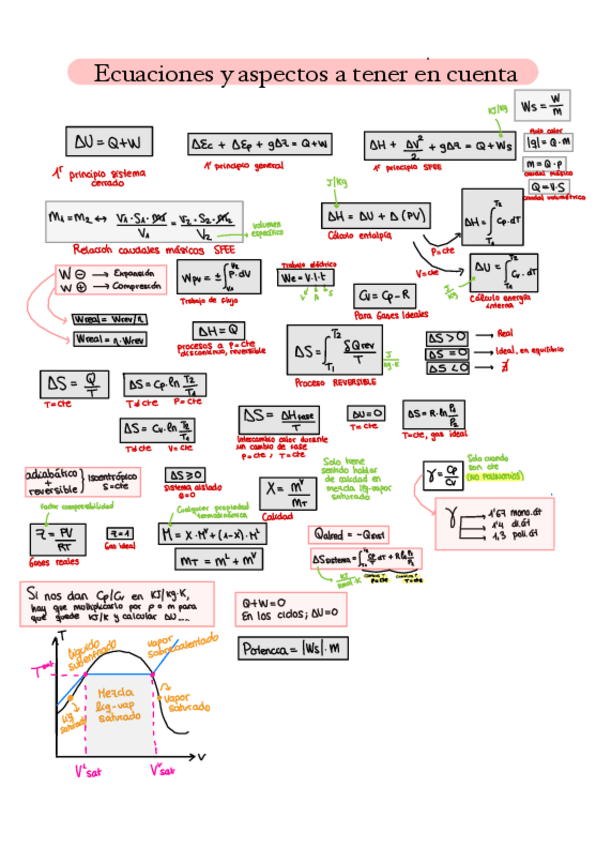 Ecuaciones y aspectos a tener en cuenta
KJ/kg
Ws = W/m
ΔU = Q+W
1º principio sistema cerrado
ΔEc + ΔEp + gΔz = Q+W
1º principio general
ΔH + ΔV²/2 + gΔz = Q+Ws
1º principio SFEE
flujo calor
|q| = Q·m
m = Q·ρ
caudal másico
Q = V·S
caudal volumétrico
m₁=m₂ ↔ V₁·S₁·m₁/V₁ = V₂·S₂·m₂/V₂
volumen específico
Relación caudales másicos SFEE
J/kg
ΔH = ΔU + Δ(PV)
Cálculo entalpía
P=cte
V=cte
ΔH = ∫T₁T₂ Cp·dT
ΔU = ∫T₁T₂ Cv·dT
J/kg
Cálculo energía interna
W ⊖ → Expansión
W ⊕ → Compresión
Wpv = ±∫V₁V₂ P·dV
Trabajo de flujo
Trabajo eléctrico
We = V·I·t
V A s
Cv = Cp-R
Para Gases Ideales
Wreal = Wrev/η
Wreal = η·Wrev
ΔH = Q
procesos a P=cte
discontinuo, reversible
ΔS = ∫T₁T₂ δQrev/T
J/kg·K
Proceso REVERSIBLE
ΔS > 0 → Real
ΔS = 0 → Ideal, en equilibrio
ΔS < 0 → ∄
ΔS = Q/T
T=cte
ΔS = Cp·ln T₂/T₁
T≠cte P=cte
ΔS = Cv·ln T₂/T₁
T≠cte V=cte
ΔS = ΔHfase/T
Intercambio calor durante
un cambio de fase
P=cte, T=cte
ΔU=0
T=cte
ΔS = R·ln P₁/P₂
T=cte, gas ideal
adiabático + reversible } isoentrópico S=cte
ΔS ≥ 0
Sistema aislado
Q=0
X = mᵛ/mT
Calidad
Solo tiene
sentido hablar
de calidad en
mezcla líq-vapor
saturado
γ = Cp/Cv
Solo cuando
son cte
(NO POLINOMIOS)
γ
1'67 mono.át
1'4 di.át
1,3 poli.át
Factor compresibilidad
z = PV/RT
Gases reales
z=1
Gas ideal
Cualquier propiedad
termodinámica
M = X·Mᵛ + (1-X)·Mᴸ
mT = mᴸ + mᵛ
Qalred = -Qsist
ΔSsistema = ∫T₁T₂ Cp/T dT + R ln P₁/P₂
Si nos dan Cp/Cv en KJ/kg·K,
hay que multiplicarlo por ρ o m para
que quede KJ/K y calcular ΔU....
Q+W=0
En los ciclos; ΔU=0
Potencia = |Ws|·m
T
Tˢᵃᵗ
líquido subenfriado
vapor sobrecalentado
líq saturado
Mezcla
líq-vap
saturado
vapor
saturado
V
Vᴸsat
Vᵛsat